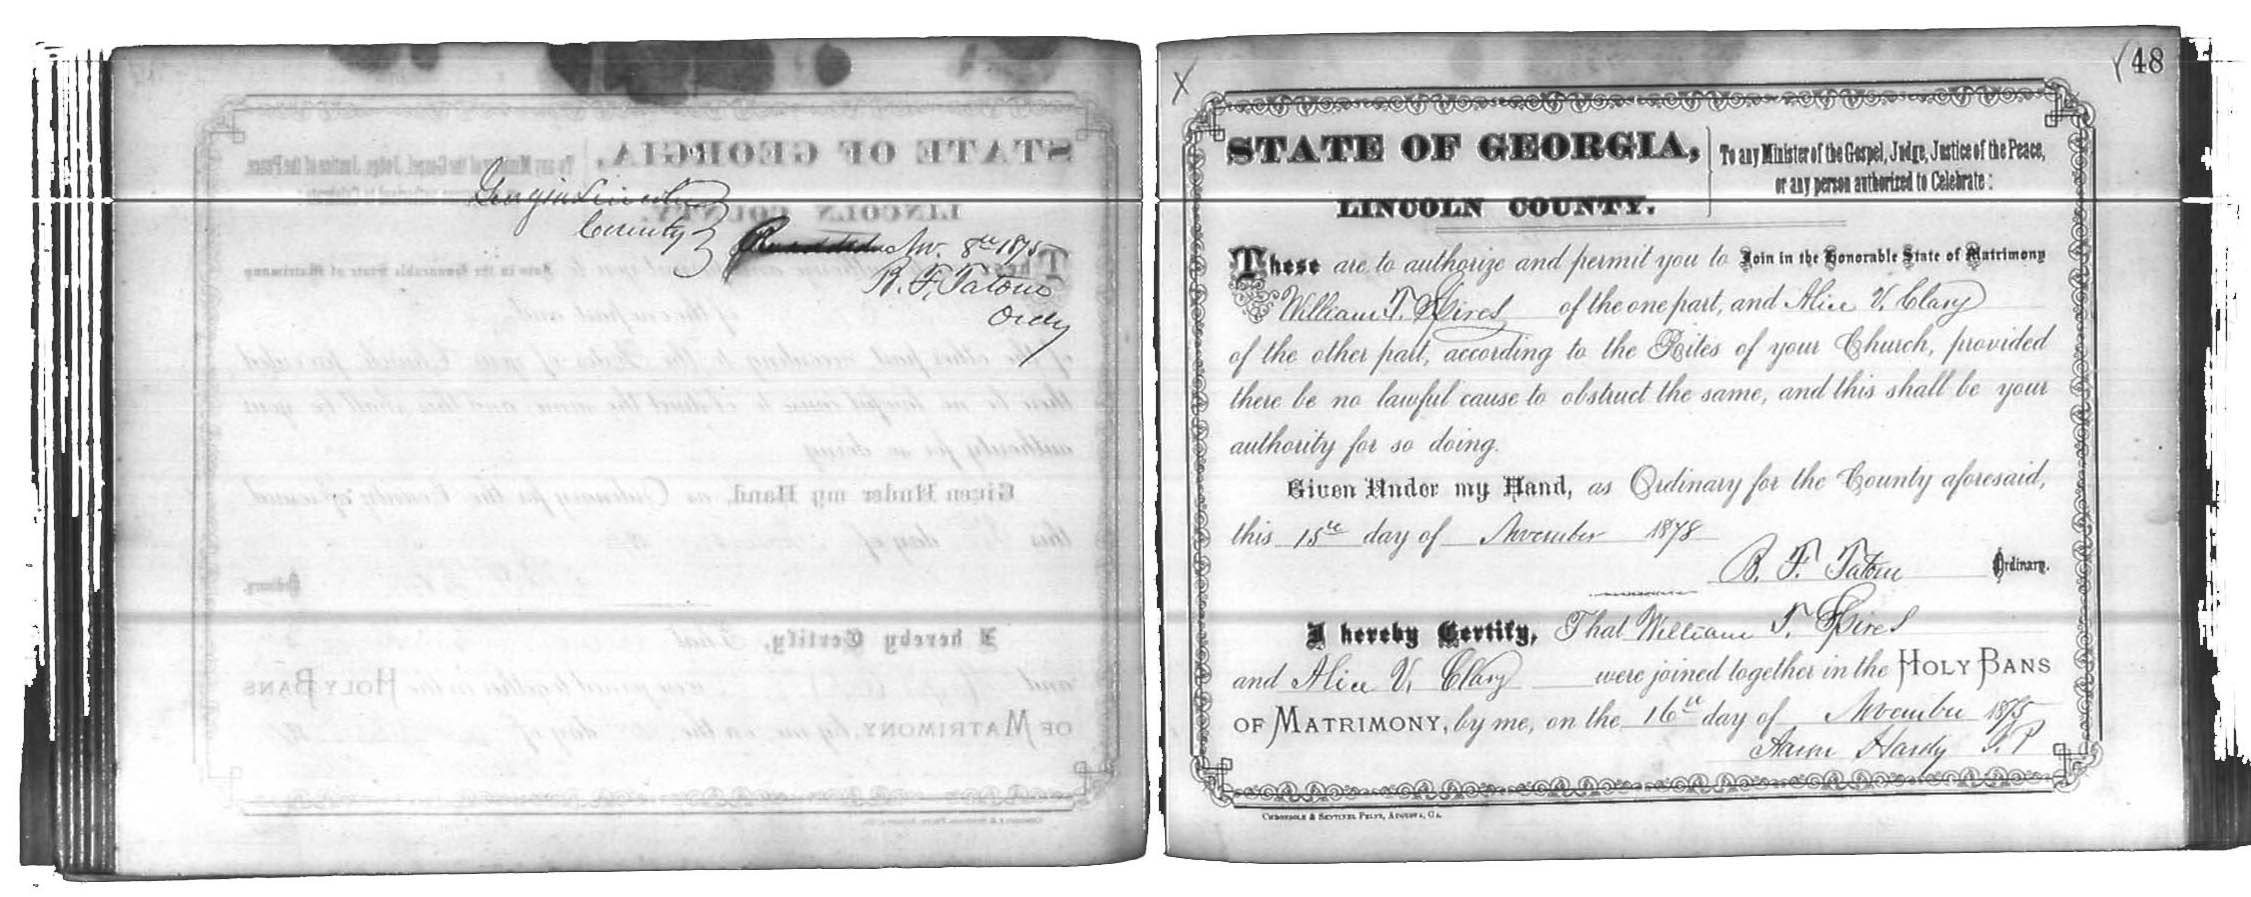 Georgia Lincoln
County
Nov. 8th 1875
B. F. Tatom
Ordy
X
48
STATE OF GEORGIA,
LINCOLN COUNTY.
To any Minister of the Gospel, Judge, Justice of the Peace,
or any person authorized to Celebrate:
These are to authorize and permit you to Join in the Honorable State of Matrimony
William T. Spires of the one part, and Alice V. Clary
of the other part, according to the Rites of your Church, provided
there be no lawful cause to obstruct the same, and this shall be your
authority for so doing.
Given Under my Hand, as Ordinary for the County aforesaid,
this 15th day of November 1875
B. F. Tatom Ordinary.
I hereby Certify, That William T. Spires
and Alice V. Clary were joined together in the HOLY BANS
OF MATRIMONY, by me, on the 16th day of November 1875
Aaron Hardy J. P
CHRONICLE & SENTINEL PRINT, AUGUSTA, GA.